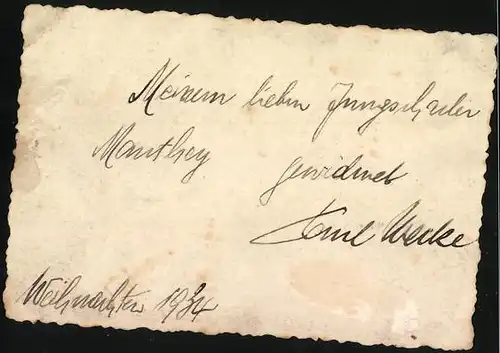 Meinem lieben Jungschüler
Manthey gewidmet
Emil Wecke
Weihnachten 1934